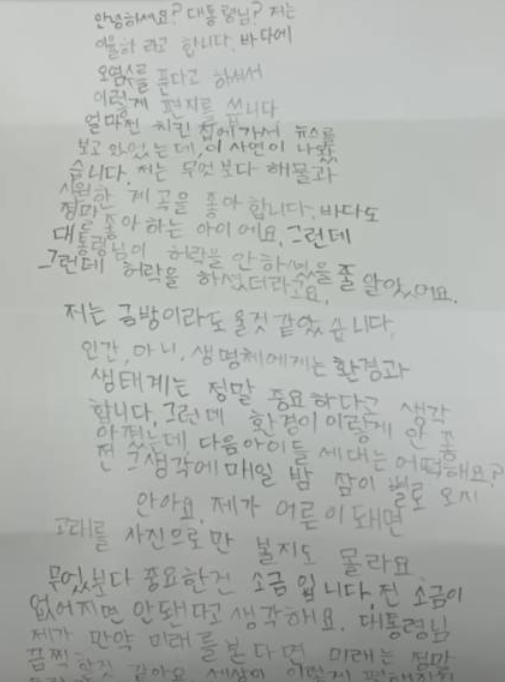 안녕하세요? 대통령님? 저는
이율하 라고 합니다. 바다에
오염수를 푼다고 하셔서
이렇게 편지를 씁니다
얼마전 치킨 집에 가서 뉴스를
보고 와있는데, 이 사연이 나왔
습니다. 저는 무엇보다 해물과
시원한 계곡을 좋아합니다. 바다도
정마
대 좋아하는 아이에요. 그런데
대통령님이 허락을 안 하셨을 줄 알았어요.
그런데 허락을 하셨더라고요.
저는 금방이라도 울것 같았습니다.
인간, 아니, 생명체에게는 환경과
생태계는 정말 중요하다고 생각
합니다. 그런데 환경이 이렇게 안 좋
아졌는데, 다음 아이들 세대는 어떡해요?
전 그 생각에 매일 밤 잠이 별로 오지
안아요. 제가 어른이 돼면
고래를 사진으로만 볼지도 몰라요
무엇보다 중요한건 소금입니다. 전 소금이
없어지면 안됀다고 생각해요. 대통령님
제가 만약 미래를 본다면 미래는 정말
끔찍할것 같아요. 세상이 이렇게